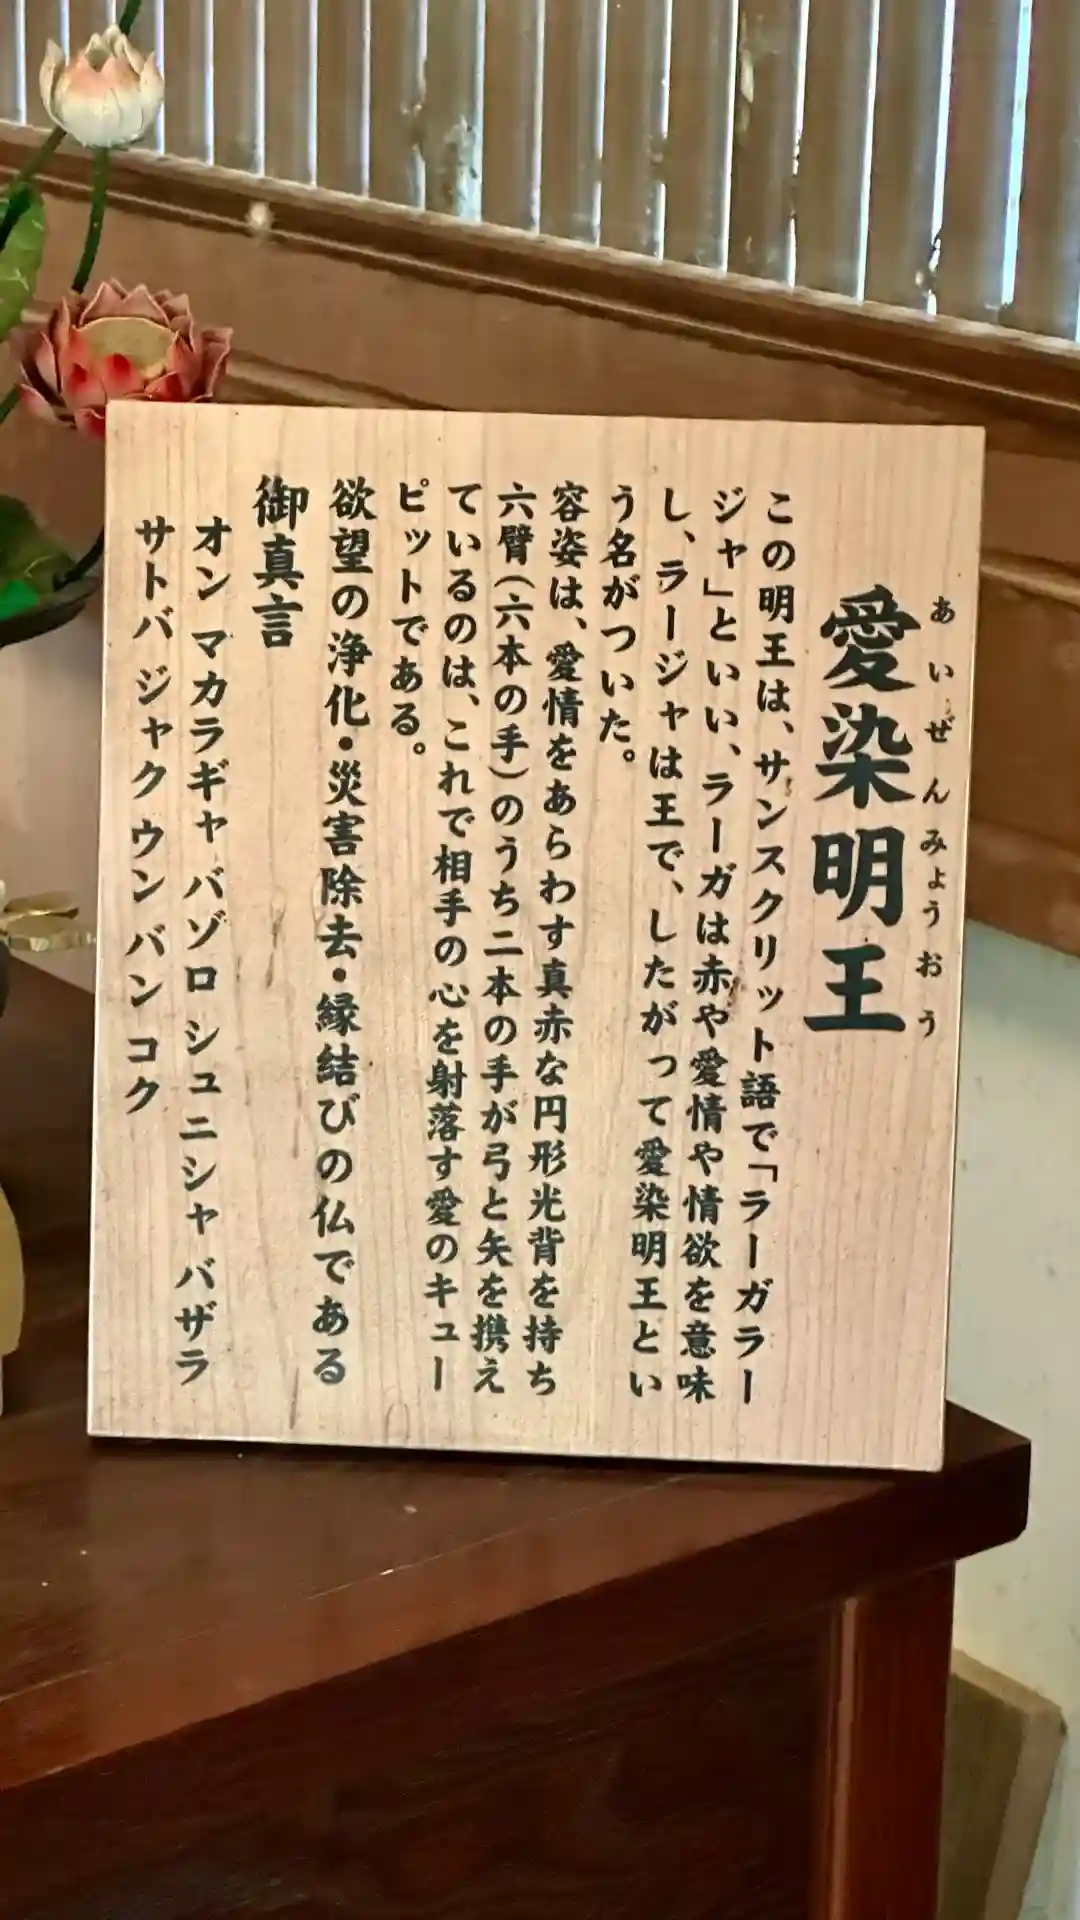 愛染明王
あいぜんみょうおう
この明王は、サンスクリット語で「ラーガラー
ジャ」といい、ラーガは赤や愛情や情欲を意味
し、ラージャは王で、したがって愛染明王とい
う名がついた。
容姿は、愛情をあらわす真赤な円形光背を持ち
六臂(六本の手)のうち二本の手が弓と矢を携え
ているのは、これで相手の心を射落す愛のキュー
ピットである。
欲望の浄化・災害除去・縁結びの仏である
御真言
オン マカラギャ バゾロ シュニシャ バザラ
サトバ ジャク ウン バン コク